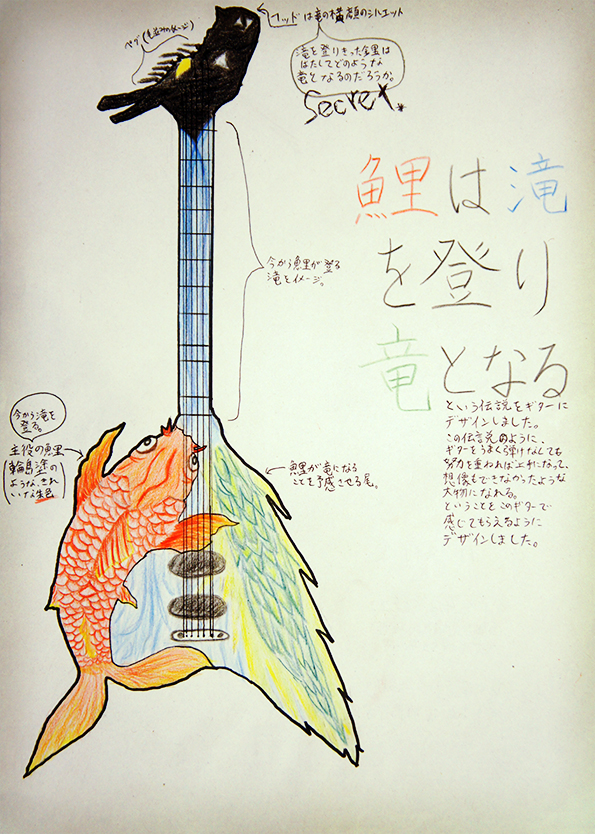 ヘッドは竜の横顔のシルエット
滝を登りきった鯉は
はたしてどのような
竜となるのだろうか。
Secret.
鯉は滝
を登り
竜となる
という伝説をギターに
デザインしました。
この伝説のように、
ギターをうまく弾けなくても
努力を重ねれば上手になって、
想像もできなかったような
大物になれる。
ということをこのギターで
感じてもらえるように
デザインしました。
今から鯉が登る
滝をイメージ。
今から滝を
登る。
主役の鯉
輪島塗の
ような、きれ
いな朱色
鯉が竜になる
ことを予感させる尾。